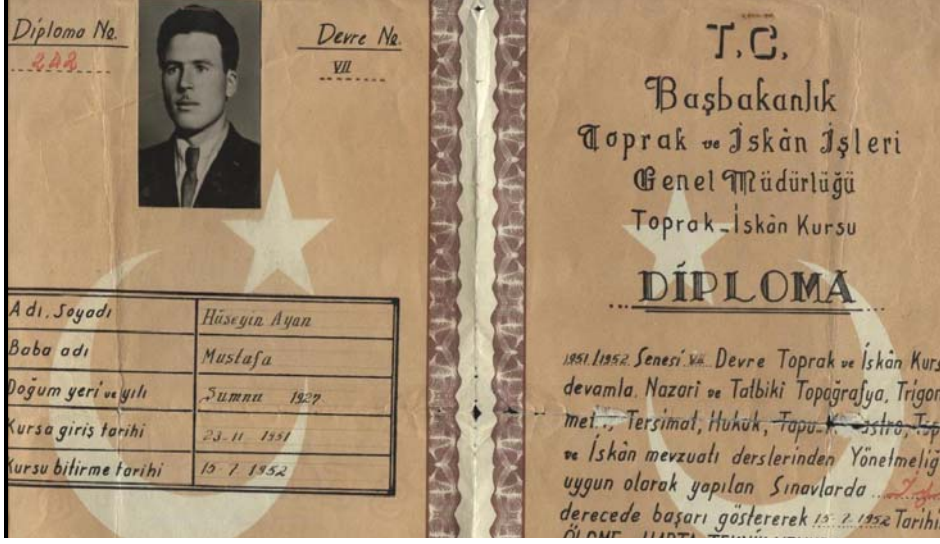 Diploma No.
242
Devre No.
VII
Adı, Soyadı Hüseyin Ayan
Baba adı Mustafa
Doğum yeri ve yılı Şumnu 1927
Kursa giriş tarihi 23-11 1951
Kursu bitirme tarihi 15-7 1952
T.C.
Başbakanlık
Toprak ve İskân İşleri
Genel Müdürlüğü
Toprak-İskân Kursu
DİPLOMA
1951/1952 Senesi VII Devre Toprak ve İskân Kurs
devamla. Nazari ve Tatbiki Topoğrafya, Trigon
met.., Tersimat, Hukuk, Tapu
ve İskân mevzuatı derslerinden Yönetmeliğ
uygun olarak yapılan Sınavlarda
derecede başarı göstererek 15-7-1952 Tarihi